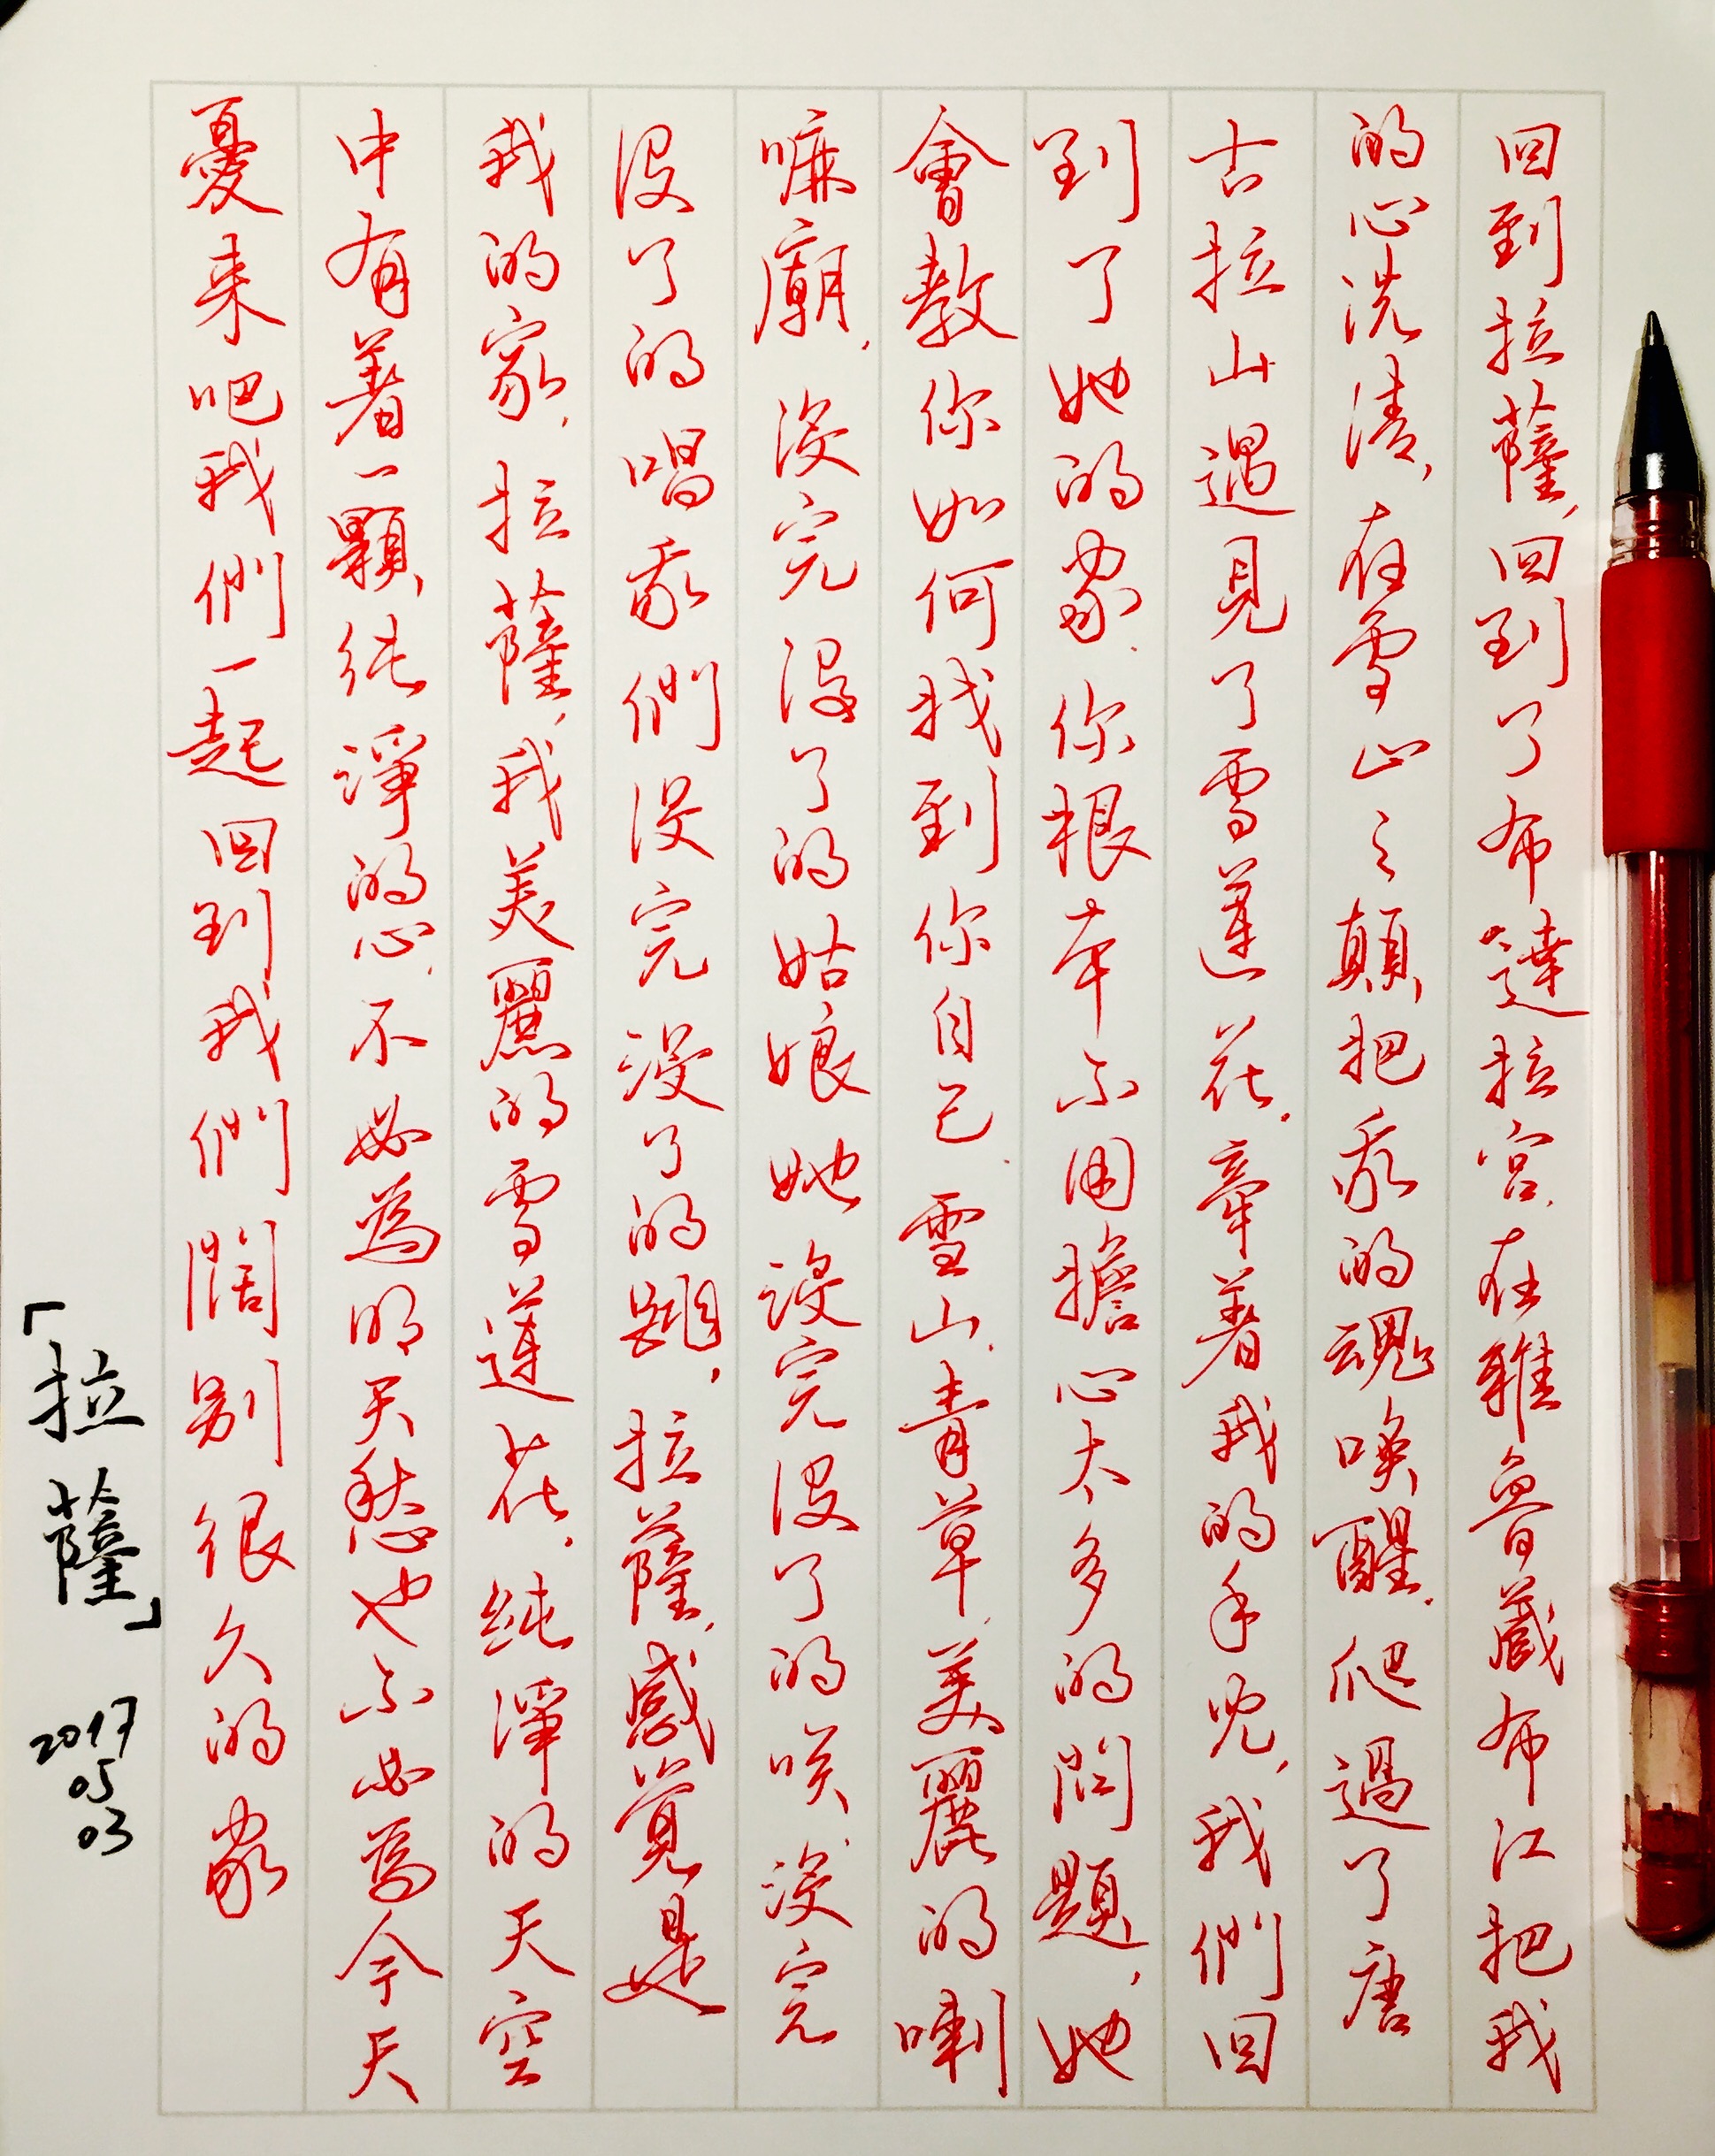 回到拉薩,回到了布達拉宮.在雅魯藏布江把我
的心洗清,在雪山之顛,把我的魂喚醒.爬過了唐
古拉山遇見了雪蓮花.牽著我的手兒,我們回
到了她的家.你根本不用擔心太多的問題,她
會教你如何找到你自己.雪山.青草.美麗的喇
嘛廟,沒完沒了的姑娘她沒完沒了的唉.沒完
沒了的唱我們沒完沒了的跳,拉薩,感覺是
我的家,拉薩,我美麗的雪蓮花,純淨的天空
中有著一顆,純淨的心.不必為明天愁也不必為今天
憂来吧我們一起回到我們闊别很久的家
「拉薩」 2017
05
03